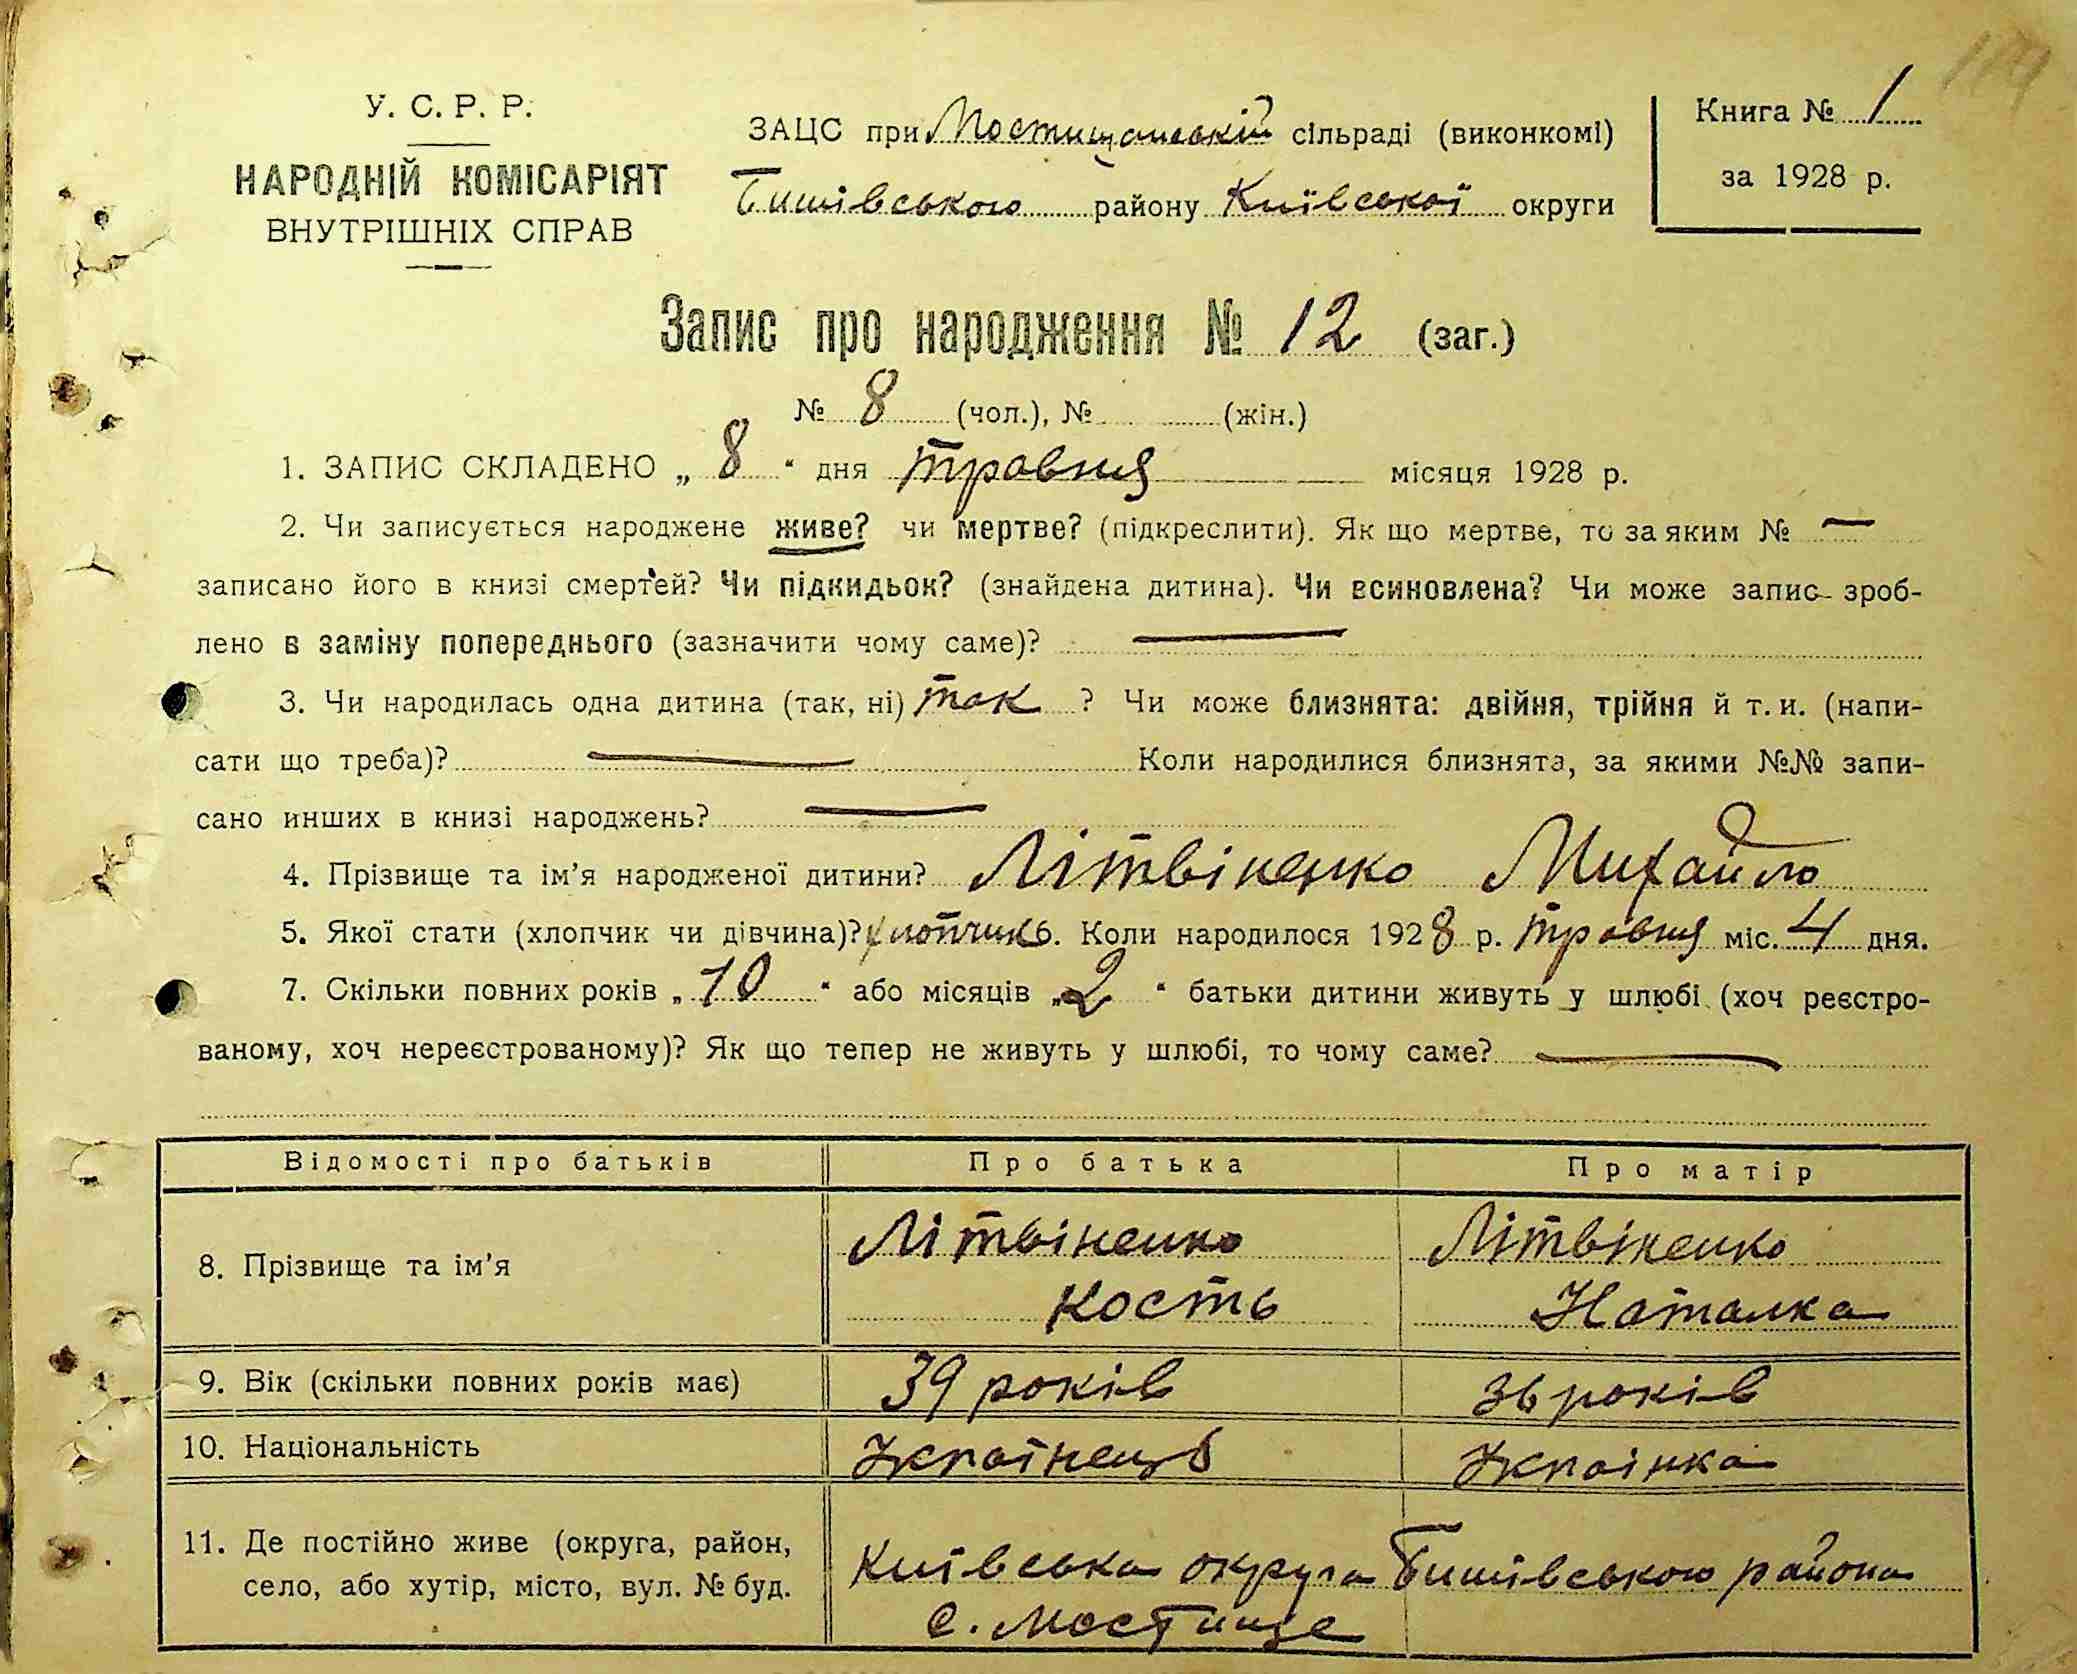 У. С. Р. Р.
НАРОДНІЙ КОМІСАРІЯТ
ВНУТРІШНІХ СПРАВ
ЗАЦС при Мостищанській сільраді (виконкомі)
Бишівського району Київської округи
Книга № 1
за 1928 р.
Запис про народження № 12 (заг.)
№ 8 (чол.), № (жін.)
1. ЗАПИС СКЛАДЕНО „ 8 “ дня травня місяця 1928 р.
2. Чи записується народжене живе? чи мертве? (підкреслити). Як що мертве, то за яким № —
записано його в книзі смертей? Чи підкидьок? (знайдена дитина). Чи всиновлена? Чи може запис зроб-
лено в заміну попереднього (зазначити чому саме)? —
3. Чи народилась одна дитина (так, ні) так ? Чи може близнята: двійня, трійня й т. и. (напи-
сати що треба)? — Коли народилися близнята, за якими №№ запи-
сано инших в книзі народжень? —
4. Прізвище та ім’я народженої дитини? Літвіненко Михайло
5. Якої стати (хлопчик чи дівчина)? хлопчик 6. Коли народилося 1928 р. травня міс. 4 дня.
7. Скільки повних років „ 10 “ або місяців „ 2 “ батьки дитини живуть у шлюбі (хоч реєстро-
ваному, хоч нереєстрованому)? Як що тепер не живуть у шлюбі, то чому саме? —
Відомості про батьків Про батька Про матір
8. Прізвище та ім’я Літвіненко Літвіненко
Кость Наталка
9. Вік (скільки повних років має) 39 років 36 років
10. Національність Українець Українка
11. Де постійно живе (округа, район,
село, або хутір, місто, вул. № буд.
Київська округа Бишівського района
с. Мостище